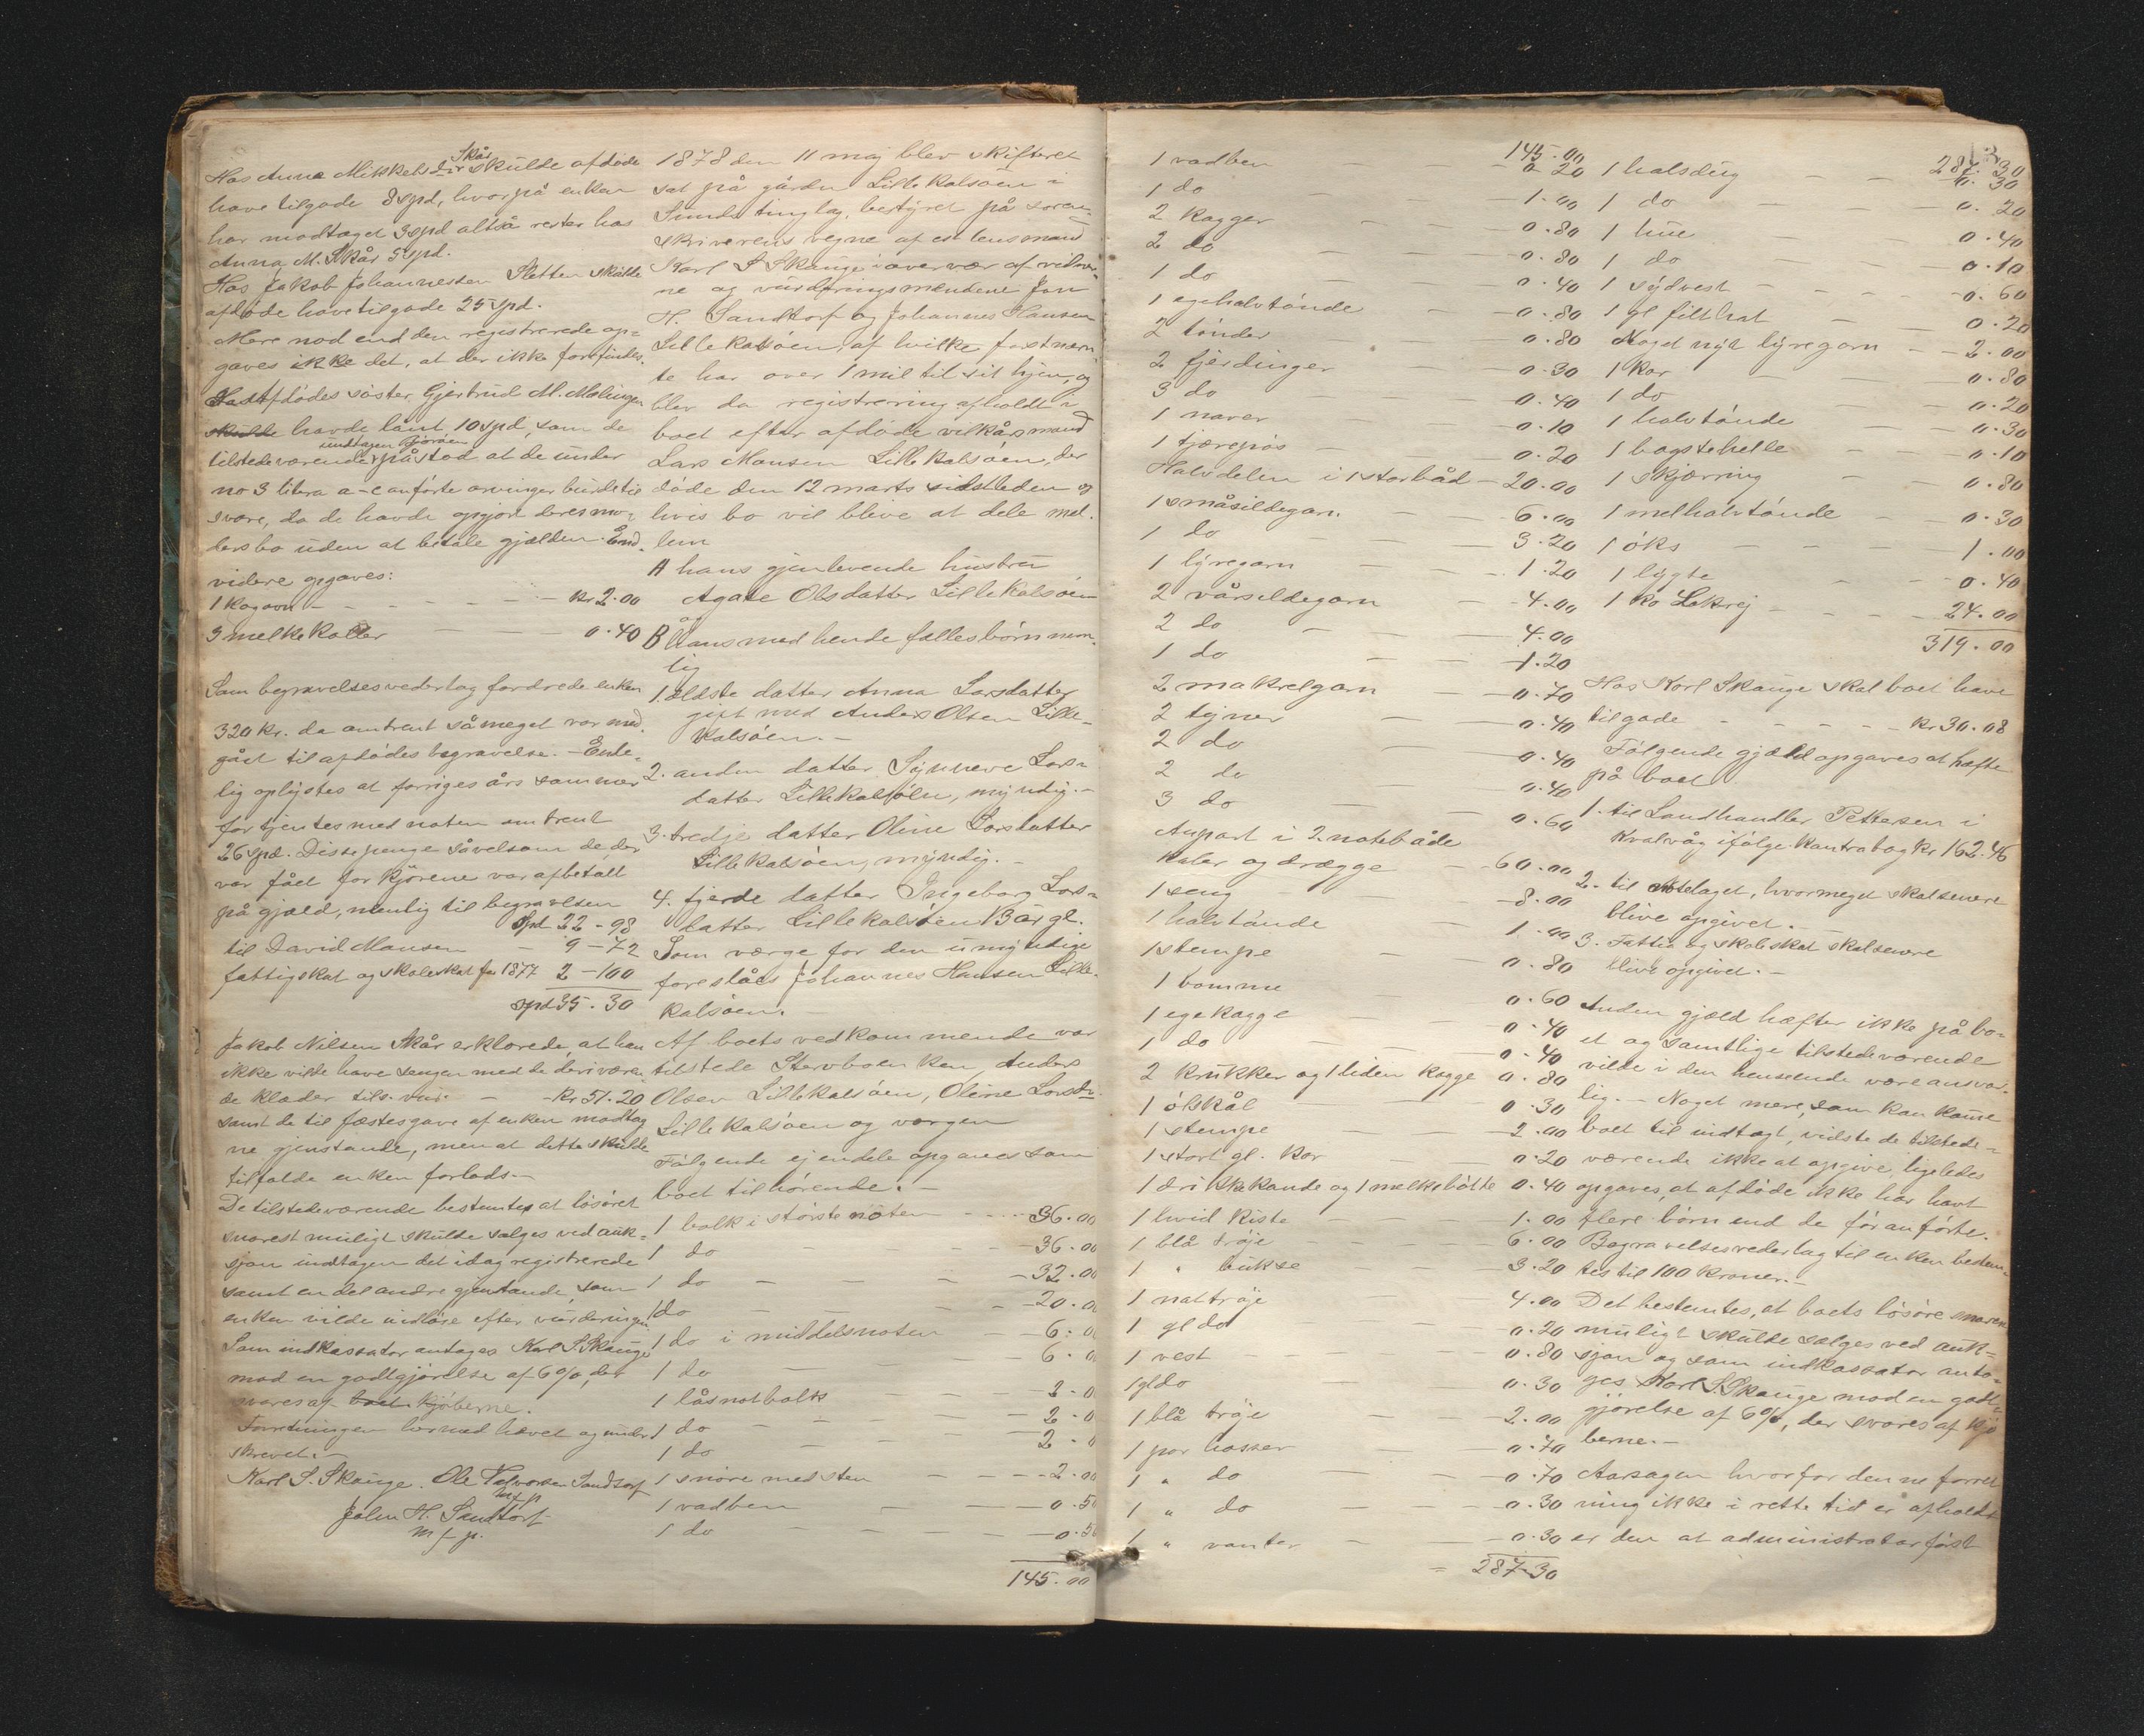 Hos Anna Mikkelsdtr Skår skulde afdöde
have tilgode 8 spd, hvorpå enken
har modtaget 3 spd altså rester hos
Anna M. Skår 5 spd.
Hos Jakob Johannessen Sletten skulde
afdöde have tilgode 25 spd.
Mere nod end den registrerede op-
gaves ikke det, at der ikke forefindes.
Hos Afdödes söster Gjertrud M. Molingen
skulde havde lånt 10 spd, som de
tilstedeværende undtagen Sjovåen påstod at de under
no 3 litra a-c anförte arvinger burde til
svare, da de havde opgjort deres mo-
ders bo uden at betale gjælden. End-
videre opgaves:
1 kogovn - - - - - kr 2.00
3 melkekoller — — 0.40
Som begravelsesvederlag fordrede enken
320 kr. da omtrent såmeget var med-
gået til afdödes begravelse. - Ende-
lig oplystes at forriges års sommer
fortjentes med noten omtrent
26 spd. Disse penge såvelsom de, der
var fået for kjörene var afbetalt
på gjæld, nemlig til begravelsen
Spd 22 - 98
til David Monsen — 9 - 72
fattigskat og skoleskat for 1877 2 - 100
spd 35. 30
Jakob Nilsen Skår erklærede, at han
ikke vilde have sengen med de deri være-
de klæder tils. vur. — - Kr 51.20
samt de til fæstesgave af enken modtag-
ne gjenstande, men at dette skulde
tilfalde enken forlods.-
De tilstedeværende bestemtes at lösöret
snarest muligt skulde sælges ved auk-
sjon undtagen det idag registrerede
samt en del andre gjenstande, som
enken vilde indlöse efter vurderingen
Som indkassator antages Karl S. Skauge
mod en godtgjörelse af 6 %, der
svares af boet kjöberne.
Forretningen hermed hævet og under-
skrevet.-
Karl S. Skauge. Ole Halvorsen Sandtorf
m f p
John H. Sandtorf
m f p.
1878 den 11 maj blev skifteret
sat på gården Lille Kalsöen i
Sunds tinglag, bestyret på soren-
skriverens vegne af cst lensmand
Karl S Skauge i overvær af vidner-
ne og vurderingsmendene Jon
H. Sandtorf og Johannes Hansen
Lille kalsöen, af hvilke förstnævn-
te har over 1 mil til sit hjem, og
blev da registrering afholdt i
boet efter afdöde vilkårsmand
Lars Monsen Lille kalsöen, der
döde den 12 marts sidstleden og
hvis bo vil blive at dele mel-
lem
A hans gjenlevende hustru
Agate Olsdatter Lille kalsöen
og
B hans med hende fælles börn nem-
lig
1. ældste datter Anna Larsdatter
gift med Anders Olsen Lille-
kalsöen. -
2. anden datter Synneve Lars-
datter Lillekalsöen, myndig. -
3. tredje datter Oline Larsdatter
Lille kalsöen, myndig. -
4. fjerde datter Ingeborg Lars-
datter Lille kalsöen 13 år gl.
Som værge for den umyndige
foreslåes Johannes Hansen Lille-
kalsöen. -
Af boets vedkommende var
tilstede Stervboenken, Anders
Olsen Lille kalsöen, Oline Larsdtr
Lille kalsöen og værgen
Fölgende ejendele opgaves som
boet tilhörende. -
1 bolk i störste nöten - - - 36.00
1 do - - - 36.00
1 do - - - 32.00
1 do - - - 20.0
1 do i middelsnoten - 6.0
1 do — — 6.0
1 låsnotbolk — 2.0
1 do - - - 2.0
1 do - - - 2.0
1 snöre med sten - - - 2.00
1 vadben — — 0.50
1 do - - - 0.50
145.00
145.00
1 vadben — — 0 20
1 do — — 1.00
2 kagger — — 0.80
2 do — — 0.80
1 do — — 0.40
1 egehalvtönde — 0.80
2 tönder — 0.80
2 fjerdinger — 0.30
3 do — 0.40
1 naver — 0.10
1 tjærepös — 0.20
Halvdelen i 1 storbåd - 20.00
1 småsildegarn. — 6.00
1 do — 3.20
1 lyregarn — 1.20
2 vårsildegarn — 4.00
2 do — 4.00
1 do — 1.20
2 makrelgarn — 0.70
2 tejner — 0.40
2 do — 0.40
2 do — 0.40
3 do — 0.60
Anpart i 2 notebåde
kabler og drægge — 60.00
1 seng — 8.00
1 halvtönde — 1.00
1 stempe — 0.80
1 bomme — 0.60
1 egekagge — 0.40
1 do — 0.40
2 krukker og 1 liden kagge 0.80
1 ölskål — 0.30
1 stempe — 2.00
1 stort gl. kar — 0.20
1 drikkekande og 1 melkebötte 0.40
1 hvid kiste — 1.00
1 blå tröje — 6.00
1 " bukse — 3.20
1 nattröje — 4.00
1 gl do — 0.20
1 vest — 0.80
1 gl do — 0.30
1 blå tröje — 2.00
1 par hosser — 0.70
1 " do — 0.70
1 " do — 0.30
1 " vanter — 0.30
= 287.30
287.30
1 halsdug — — 0.30
1 do — — 0.20
1 hue — 0.40
1 do — 0.10
1 sydvest - - 0.60
1 gl filthat — 0.20
Noget nyt lyregarn - - 2.00
1 kar — 0.80
1 do — 0.20
1 halvtönde — 0.30
1 bagstehelle — 0.10
1 skjærring — 0.80
1 melhalvtönde — 0.30
1 öks — 1.00
1 lygte — 0.40
1 ko Lekrej - - 24.00
319.00
Hos Karl Skauge skal boet have
tilgode - - - - kr 30.08
Fölgende gjæld opgaves at hæfte
på boet
1. til Landhandler Pettersen i
Kvalvåg ifölge kontrabog kr 162.46
2. til Notelaget, hvormeget skal senere
blive opgivet. -
3. Fattig og skoleskat skal senere
blive opgivet. -
Anden gjæld hæfter ikke på bo-
et og samtlige tilstedeværende
vilde i den henseende være ansvar-
lig. - Noget mere, som kan komme
boet til indtægt, vidste de tilstede-
værende ikke at opgive, ligeledes
opgaves, at afdöde ikke har havt
flere börn end de föranförte.
Begravelsesvederlag til enken bestem-
tes til 100 kroner. -
Det bestemtes, at boets lösöre snarest
muligt skulde sælges ved auk-
sjon og som indkassator anta-
ges Karl S. Skauge mod en godt-
gjörelse af 6%, der svares af kjö-
berne. -
Aarsagen hvorfor denne forret
ning ikke i rette tid er afholdt
er den at administrator först